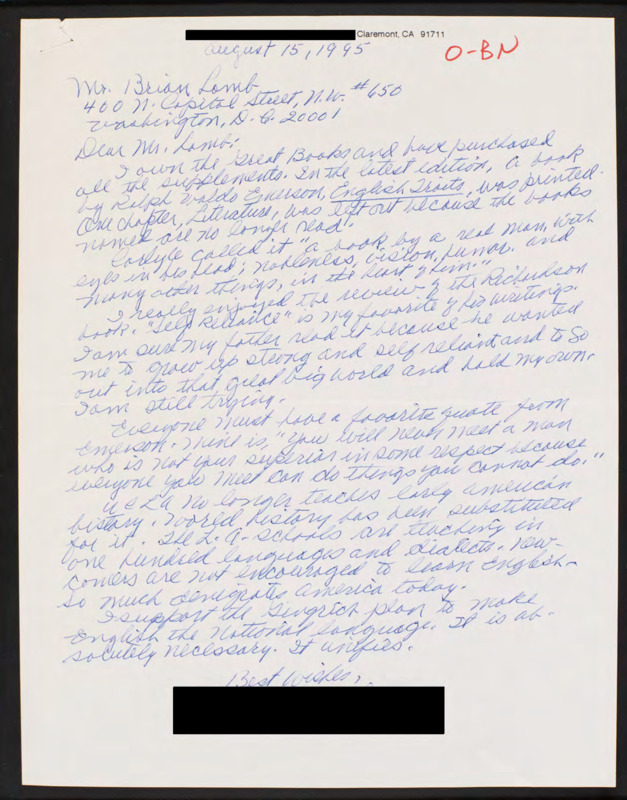 Claremont, CA 91711
August 15, 1995
O-BN
Mr. Brian Lamb
400 N. Capitol Street, N.W. #650
Washington, D.C. 20001
Dear Mr. Lamb:
I own the Great Books and have purchased
all the supplements. In the latest edition, a book
by Ralph Waldo Emerson, English Traits, was printed.
One chapter, Literature, was left out because the books
named are no longer read!
Carlyle called it "a book by a real man, with
eyes in his head; nobleness, wisdom, humor and
many other things, in the heart of him."
I really enjoyed the review of the Richardson
book. "Self Reliance" is my favorite of his writings.
I am sure my father read it because he wanted
me to grow up strong and self reliant and to go
out into that great big world and hold my own.
I am still trying.
Everyone must have a favorite quote from
Emerson. Mine is, "You will never meet a man
who is not your superior in some respect because
everyone you meet can do things you cannot do."
UCLA no longer teaches early American
history. World history has been substituted
for it. The L.A. schools are teaching in
one hundred languages and dialects. New-
comers are not encouraged to learn English.
So much denigrates America today.
I support the Gingrich plan to make
English the national language. It is ab-
solutely necessary. It unifies.
Best Wishes,